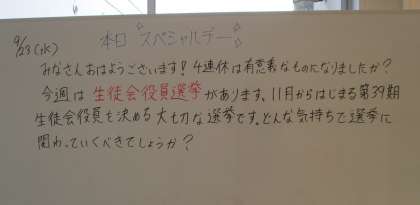 9/23(水) 本日 スペシャルデー
みなさんおはようございます! 4連休は有意義なものになりましたか?
今週は 生徒会役員選挙 があります。11月からはじまる第39期
生徒会役員を決める大切な選挙です。どんな気持ちで選挙に
関わっていくべきでしょうか?